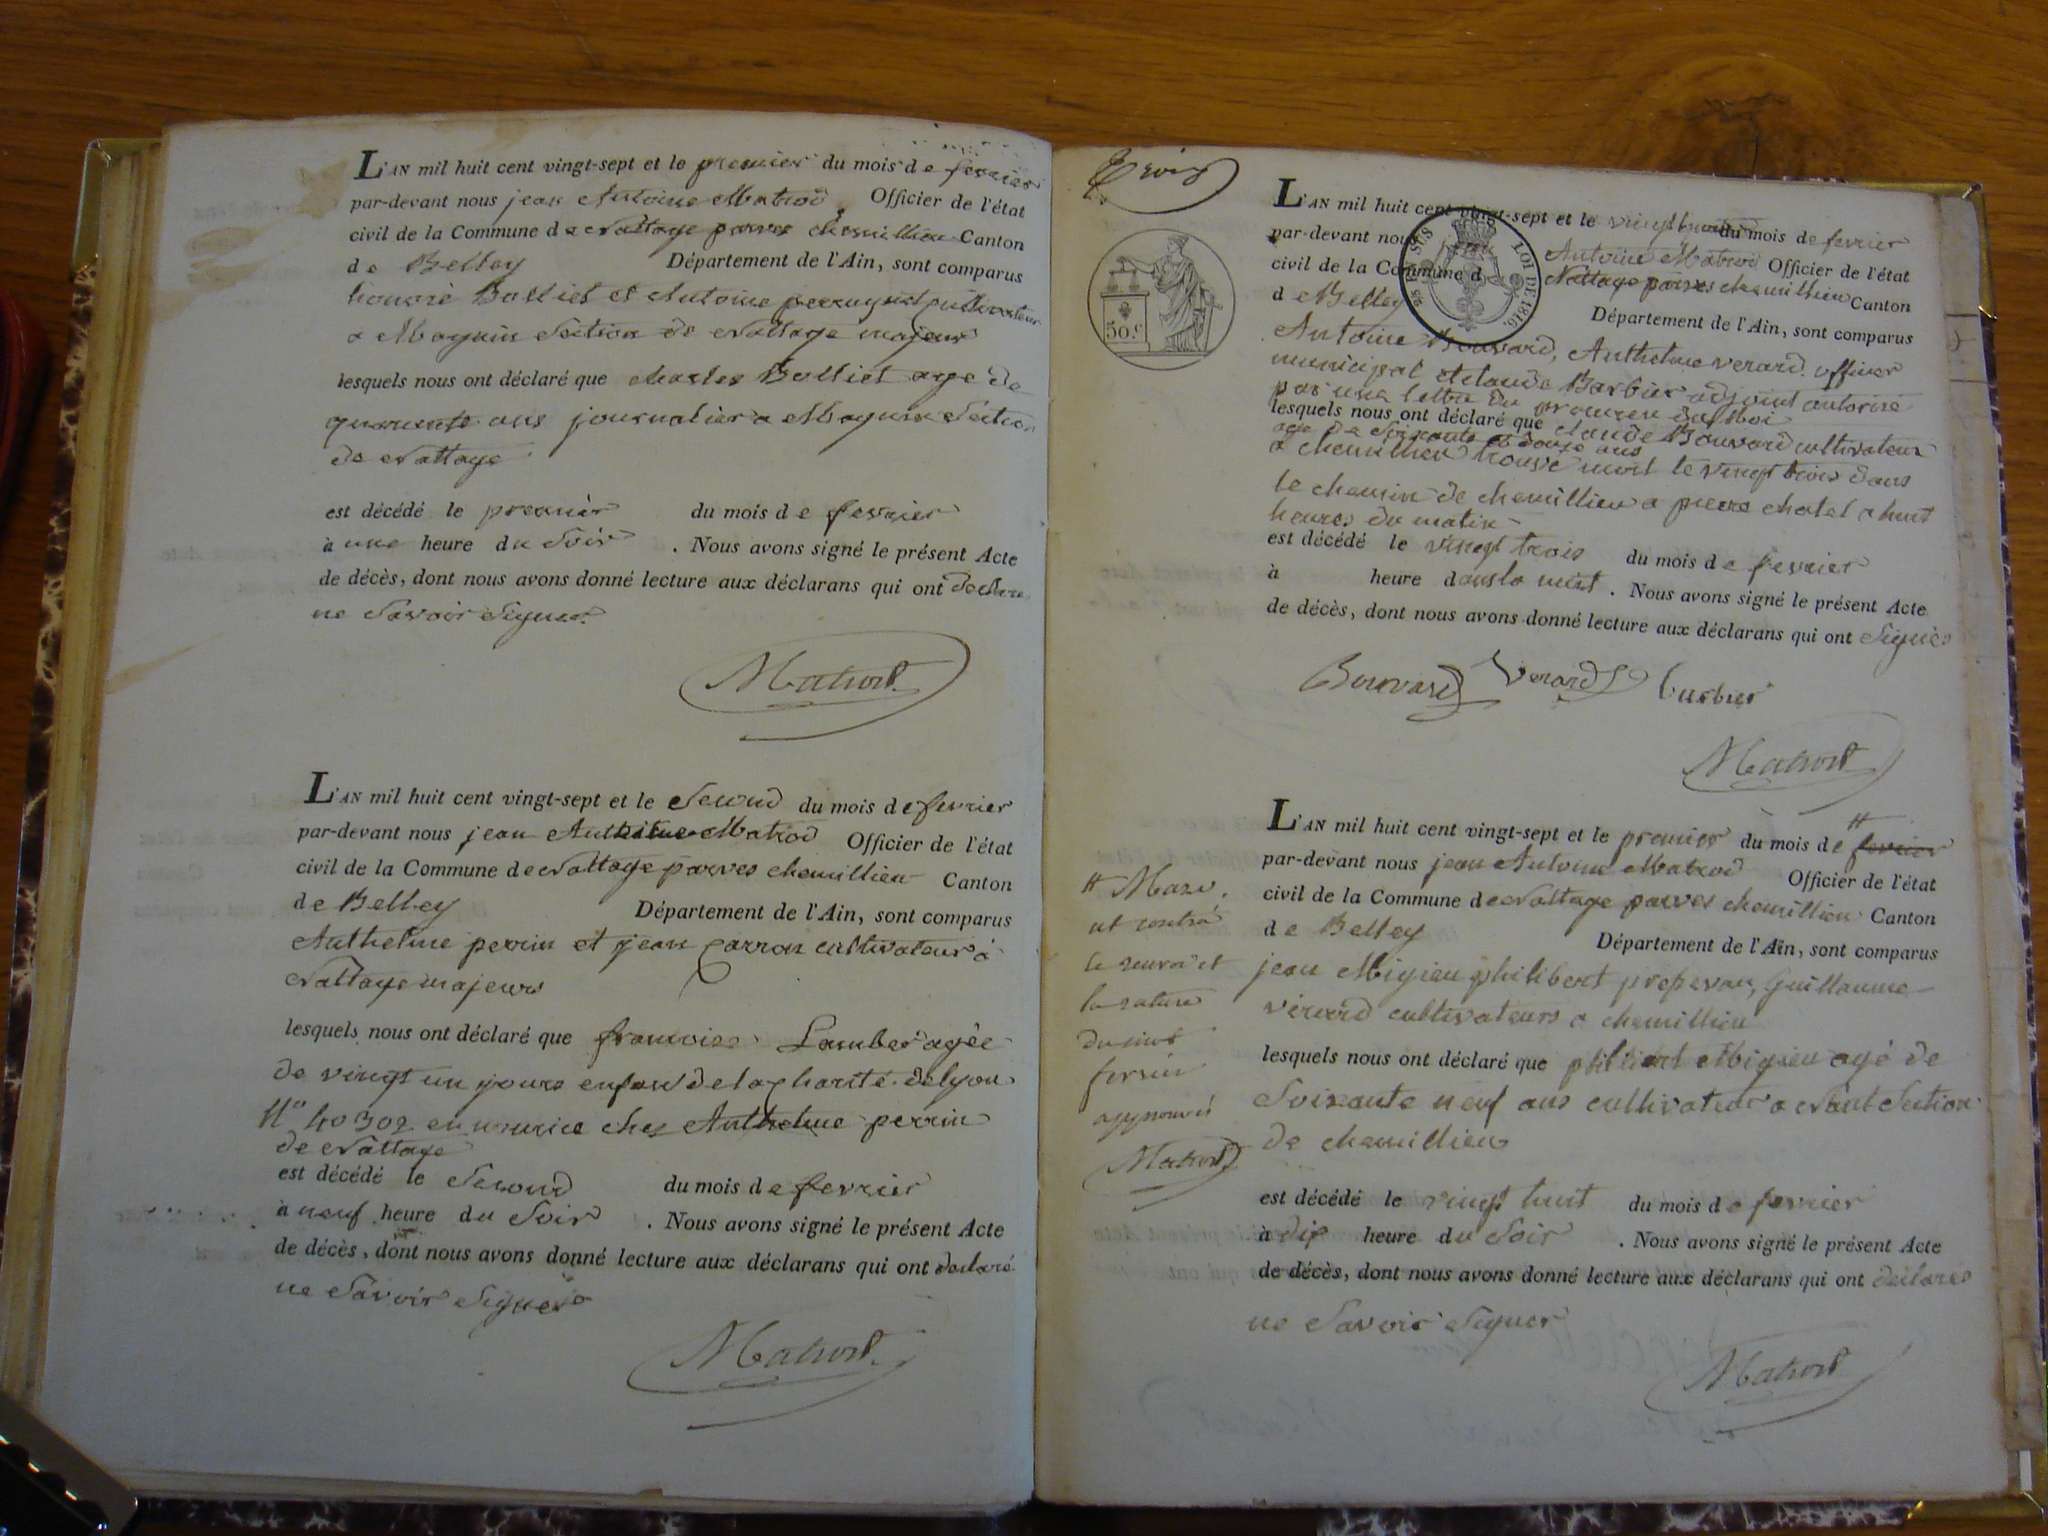 L'AN mil huit cent vingt-sept et le premier du mois de fevrier
par-devant nous jean Antoine Matrod, Officier de l'état
civil de la Commune de Nattage parves chemillieu Canton
de Belley Département de l'Ain, sont comparus
honoré Bolliet et Antoine perruquet cultivateur
a Magnin Section de Nattage majeurs
lesquels nous ont déclaré que charles Bolliet age de
quarente ans journalier a Magnin Section
de Nattage
est décédé le premier du mois de fevrier
à une heure du Soir . Nous avons signé le présent Acte
de décès, dont nous avons donné lecture aux déclarans qui ont declare
ne Savoir Signer.
Matrod.
L'AN mil huit cent vingt-sept et le Second du mois de fevrier
par-devant nous jean Matrod Officier de l'état
civil de la Commune de Nattage parves chemillieu Canton
de Belley Département de l'Ain, sont comparus
Anthelme perrin et jean Carron cultivateur à
Nattage majeurs
lesquels nous ont déclaré que francoise Lamber agée
de vingt un jours enfan de la charité de lyon
N° 40302 en nourice chez Anthelme perrin
de Nattage
est décédé le Second du mois de fevrier
à neuf heure du Soir . Nous avons signé le présent Acte
de décès, dont nous avons donné lecture aux déclarans qui ont declaré
ne Savoir Signer
Matrod.
Trois
50 c.
EN SUS
LOI DE 1816.
L'AN mil huit cent vingt-sept et le du mois de fevrier
par-devant nous jean Antoine Matrod Officier de l'état
civil de la Commune d Nattage parves chemillieu Canton
d Belley Département de l'Ain, sont comparus
Antoine Bouvard, Anthelme verard officier
municipal et claude Barbier adjoint autorisé
par une lettre du procureu du Roi
lesquels nous ont déclaré que claude Bouvard cultivateur
age de Soixante et douze ans
a chemillieu trouvé mort le vingt trois dans
le chemin de chemillieu a pierre chatel a huit
heures du matin
est décédé le vingt trois du mois de fevrier
à heure dans la nuit . Nous avons signé le présent Acte
de décès, dont nous avons donné lecture aux déclarans qui ont Signés
Bouvard Verard barbier
Matrod
L'AN mil huit cent vingt-sept et le premier du mois de # fevrier
par-devant nous jean Antoine Matrod Officier de l'état
civil de la Commune de Nattage parves chemillieu Canton
de Belley Département de l'Ain, sont comparus
jean Migieu philibert, Guillaume
vérard cultivateurs a chemillieu
lesquels nous ont déclaré que philibert Migieu agé de
Soixante neuf ans cultivateur a Section
de chemillieu
est décédé le vingt huit du mois de fevrier
à dix heure du Soir . Nous avons signé le présent Acte
de décès, dont nous avons donné lecture aux déclarans qui ont declares
ne Savoir Signer
Matrod
# Mars.
le renvoi et
la rature
du mot
fevrier
approuvés
Matrod